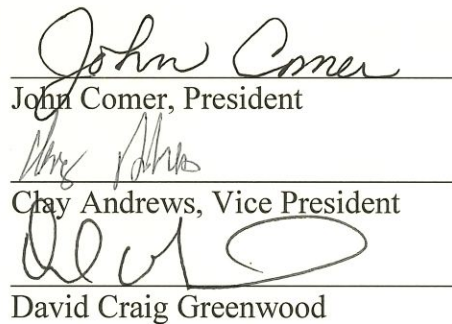 John Comer
John Comer, President
Clay Andrews, Vice President
David Craig Greenwood